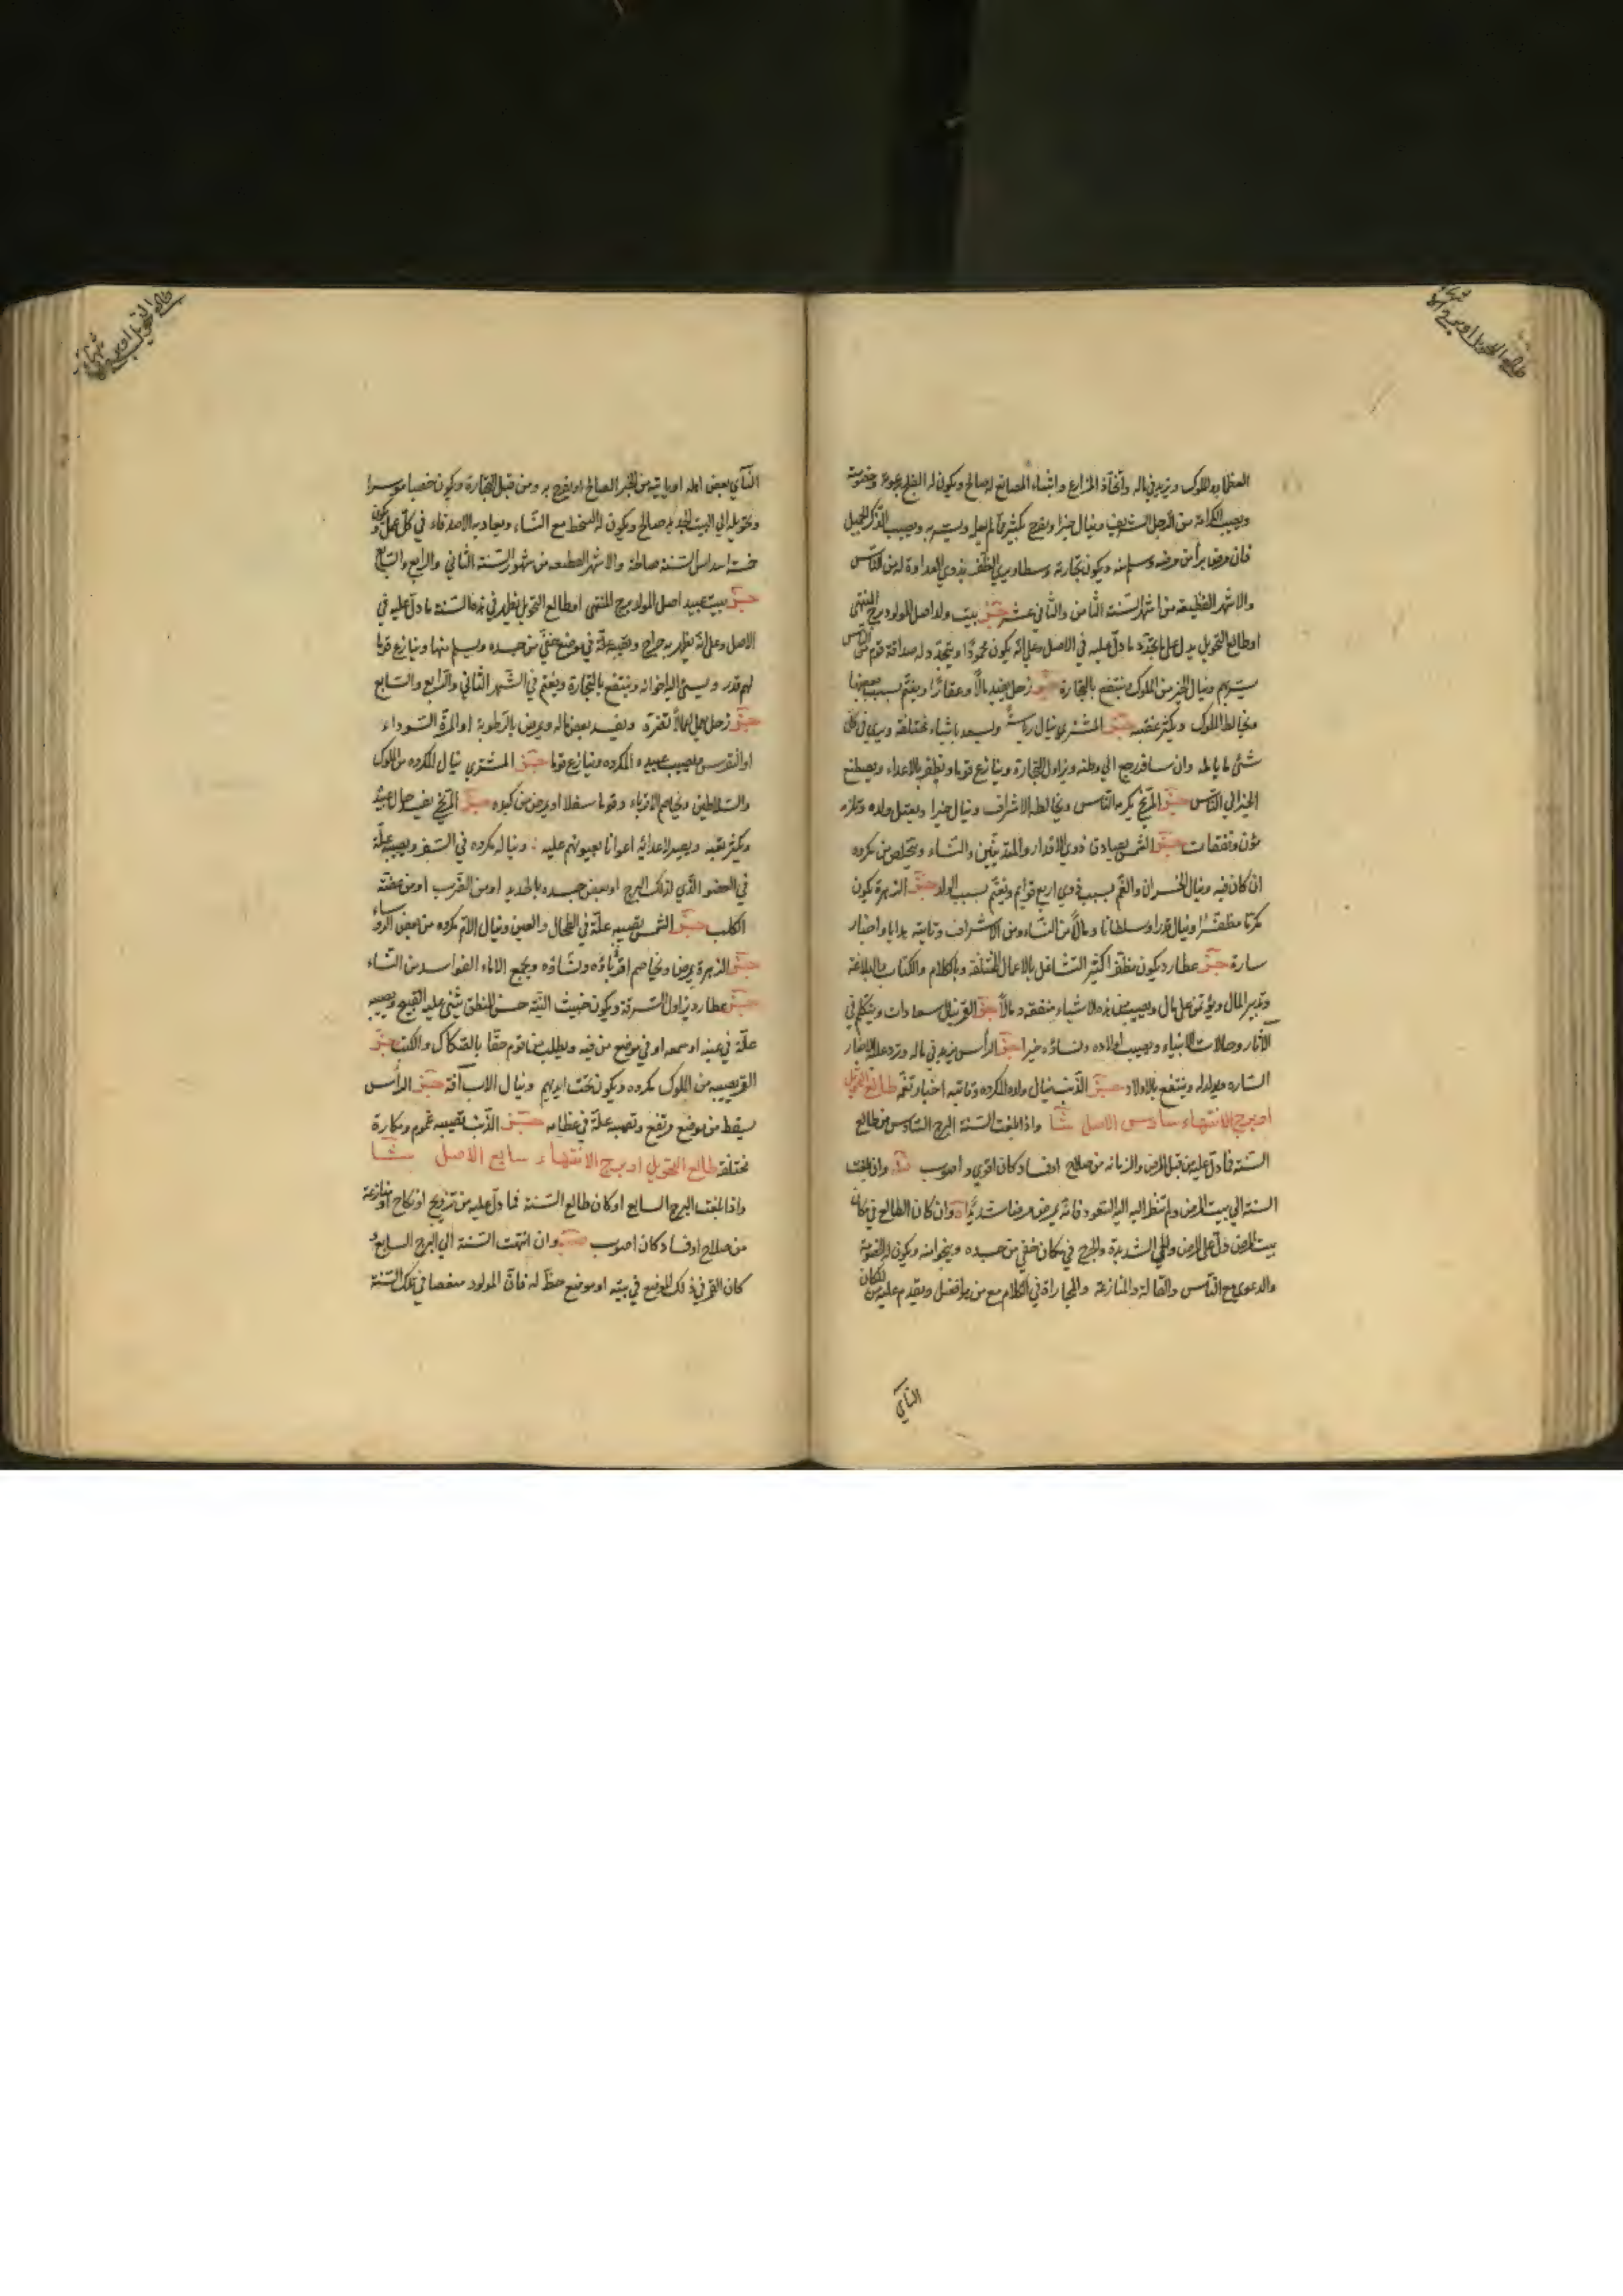 العظماء والملوك ويزيد في ماله واتخاذ المزارع وانشاء المصانع له صالح ويكون له الفلج بعبودة وخصومة
ويصيب الكرامة من الرجل الشريف وينال خيرا ويفرح بكثير مما لم يعمله ويسر به ويصيب الذكر الجميل
فان مرض برأ من مرضه وسلم منه ويكون تجارته وسطا ويرى الظفر بذوي العداوة له من الناس
والاشهر الفظيعة من اشهر السنة الثامن والثاني عشر بيت ولد اصل المولود برج المنتهى
او طالع التحويل يدل على ما دل عليه في الاصل وعلى انه يكون محمودا ويتجدد له صداقة قوم من الناس
يسر بهم وينال الخير من الملوك وينتفع بالتجارة زحل يفيد مالا وعقارا ويغتم بسبب بعضها
ويخالط الملوك ويكثر غضبه المشتري ينال رياسة ويسعد باشياء مختلفة ويرى في كل
شئ ما يأمله وان سافر رجع الى وطنه ويزاول التجارة وينازع قوما ويظفر بالاعداء ويصطنع
الخير الى الناس المريخ يكرمه الناس ويخالط الاشراف وينال خيرا ويعتل ولده وتلزمه
مؤن ونفقات الشمس يصادق ذوي الاقدار والمقدمين والنساء ويتخلص من مكروه
ان كان فيه وينال الخسران والغم بسبب ذوي اربع قوايم ويغتم بسبب الولد الزهرة يكون
مكرما مظفرا وينال قدرا وسلطانا ومالا من النساء ومن الاشراف وتأتيه هدايا واخبار
سارة عطارد يكون مظفرا كثير التشاغل بالاعمال المختلفة وبالكلام والكتاب والبلاغة
وتدبير المال ويؤتمن على مال ويصيب من هذه الاشياء منفعة ومالا القمر ينال سعادات ويتكلم في
الآثار وحالات الانبياء ويصيب اولاده ونساؤه خيرا الرأس يزيد في ماله وترد عليه الاخبار
السارة ويولد له وينتفع بالاولاد الذنب ينال ولده المكروه وتأتيه اخبار تغمه طالع التحويل
او برج الانتهاء سادس الاصل شا واذا بلغت السنة البرج السادس من طالع
السنة فما دل عليه من قبل المرض والزمانة من صلاح او فساد كان اقوى واصوب وان بلغت
السنة الى بيت المرض ولم تنظر اليه السعود فانه يمرض مرضا شديدا وان كان الطالع في مكان
بيت المرض دل على المرض والحمى الشديدة والجرح في مكان خفي من جسده وينجو منه ويكون له الخصومة
والدعوى مع الناس والقالة والمنازعة والمجاراة في الكلام مع من هو افضل ويقدم عليه من المكان
النآي
النآي بعض اهله او يأتيه من الخبر الصالح او يفرح به ومن قبل التجارة ويكون خصبا موسرا
وتحويله الى البيت الجديد صالح ويكون له السخط مع النساء ويعاديه الاصدقاء في كل عمل ويكون
خمسة اسداس السنة صالحة والاشهر الفظيعة من شهور السنة الثاني والرابع والسابع
بيت عبيد اصل المولد برج المنتهى او طالع التحويل يظهر في هذه السنة ما دل عليه في
الاصل وعلى انه يظهر به جراح وتصيبه علة في موضع خفي من جسده ويسلم منها وينازع قوما
لهم قدر ويسئ اليه اخوانه وينتفع بالتجارة ويغتم في الشهر الثاني والرابع والسابع
زحل يعمل اعمالا تضره ويفسد بعض ماله ويمرض بالرطوبة او المرة السوداء
او النقرس ويصيب عبيده المكروه وينازع قوما المشتري ينال المكروه من الملوك
والسلاطين ويخاصم الاقرباء وقوما سفلا او يمرض من كبده المريخ يفسد حال عبيده
ويكثر تعبه ويصير لاعدائه اعوانا يعينونهم عليه وينال مكروه في السفر ويصيبه علة
في العضو الذي لذلك البرج او بعض جسده بالحديد او من الضرب او من عضة
الكلب الشمس تصيبه علة في الطحال والعين وينال الالم مكروه من بعض الرؤساء
الزهرة يمرض ويخاصم اقرباؤه ونساؤه ويجمع الاماء الفواسد من النساء
عطارد يزاول السرقة ويكون خبيث النية حسن المنطق يثنى عليه القبيح ويصيبه
علة في عينه او سمعه او في موضع من فيه ويطلب من قوم حقا بالصكاك والكتب
القمر يصيبه من الملوك مكروه ويكون تحت ايديهم وينال الاب آفة الرأس
يسقط من موضع مرتفع وتصيبه علة في عظامه الذنب تصيبه غموم ومكارة
مختلفة طالع التحويل او برج الانتهاء سابع الاصل شا
واذا بلغت البرج السابع او كان طالع السنة فما دل عليه من تزويج او نكاح او منازعة
من صلاح او فساد كان اصوب وان انتهت السنة الى البرج السابع و
كان القمر في ذلك الموضع في بيته او موضع حظ له فان المولود منغصا في تلك السنة